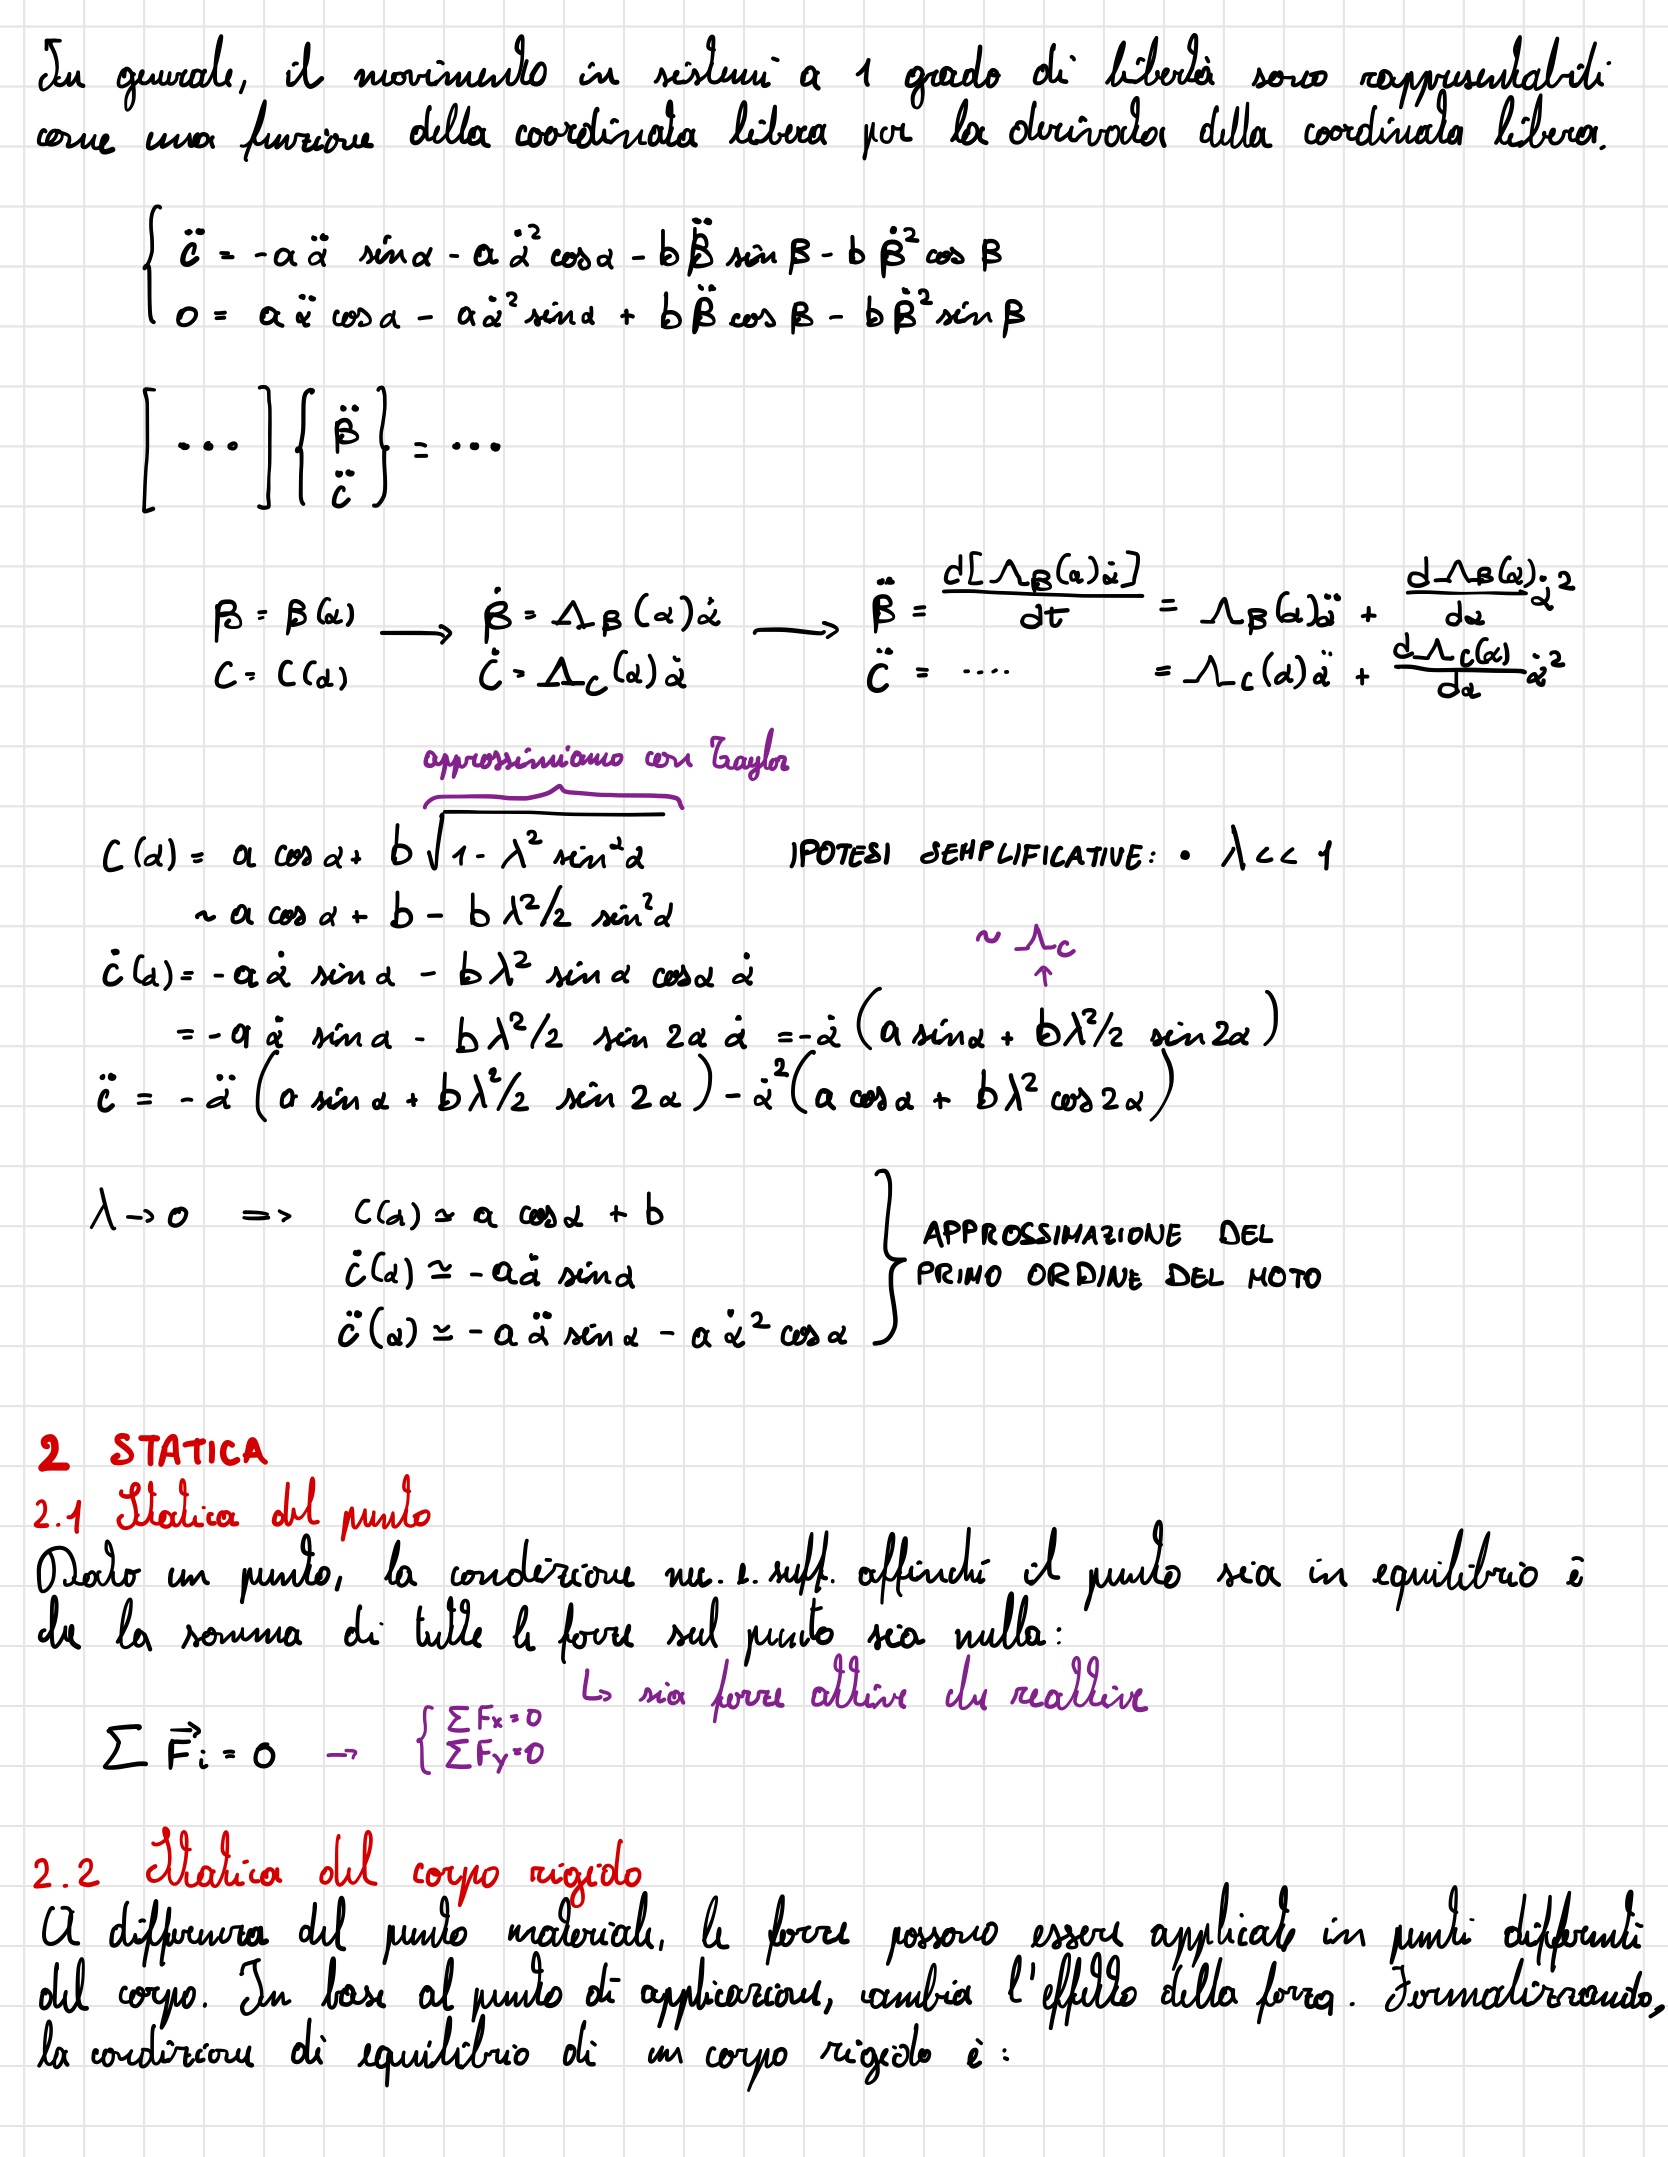 In generale, il movimento in sistemi a 1 grado di libertà sono rappresentabili
come una funzione della coordinata libera per la derivata della coordinata libera.
{ c̈ = -a α̈ sinα - a α̇² cosα - b β̈ sin β - b β̇² cos β
0 = a α̈ cosα - a α̇² sinα + b β̈ cos β - b β̇² sin β
[ ... ] { β̈ c̈ } = ...
β = β(α) → β̇ = Λ_β(α) α̇ → β̈ = d[Λ_β(α) α̇]/dt = Λ_β(α) α̈ + dΛ_β(α)/dα α̇²
C = C(α) Ċ = Λ_C(α) α̇ C̈ = .... = Λ_C(α) α̈ + dΛ_C(α)/dα α̇²
approssimiamo con Taylor
C(α) = a cos α + b √(1 - λ² sin²α) IPOTESI SEMPLIFICATIVE: • λ << 1
~ a cos α + b - b λ²/2 sin²α
~ Λ_C
↑
ċ(α) = - a α̇ sin α - b λ² sin α cosα α̇
= - a α̇ sin α - b λ²/2 sin 2α α̇ = -α̇ (a sinα + b λ²/2 sin 2α)
c̈ = - α̈ (a sin α + b λ²/2 sin 2α) - α̇² (a cosα + b λ² cos 2α)
λ → 0 => C(α) ≃ a cosα + b
ċ(α) ≃ - a α̇ sinα
c̈(α) ≃ - a α̈ sin α - a α̇² cos α
} APPROSSIMAZIONE DEL
PRIMO ORDINE DEL MOTO
2 STATICA
2.1 Statica del punto
Dato un punto, la condizione nec. e. suff. affinché il punto sia in equilibrio è
che la somma di tutte le forze sul punto sia nulla:
↳ sia forze attive che reattive
∑ F⃗i = 0 → { ∑Fx = 0
∑Fy = 0
2.2 Statica del corpo rigido
A differenza del punto materiale, le forze possono essere applicate in punti differenti
del corpo. In base al punto di applicazione, cambia l'effetto della forza. Formalizzando,
la condizione di equilibrio di un corpo rigido è: